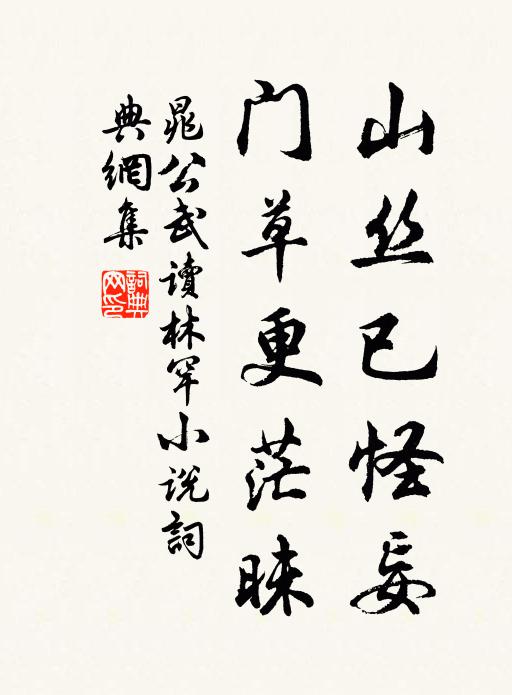 山丝已怪妄
门草更茫昧
晁公武读林罕小说詞
典網集
詞典
网印